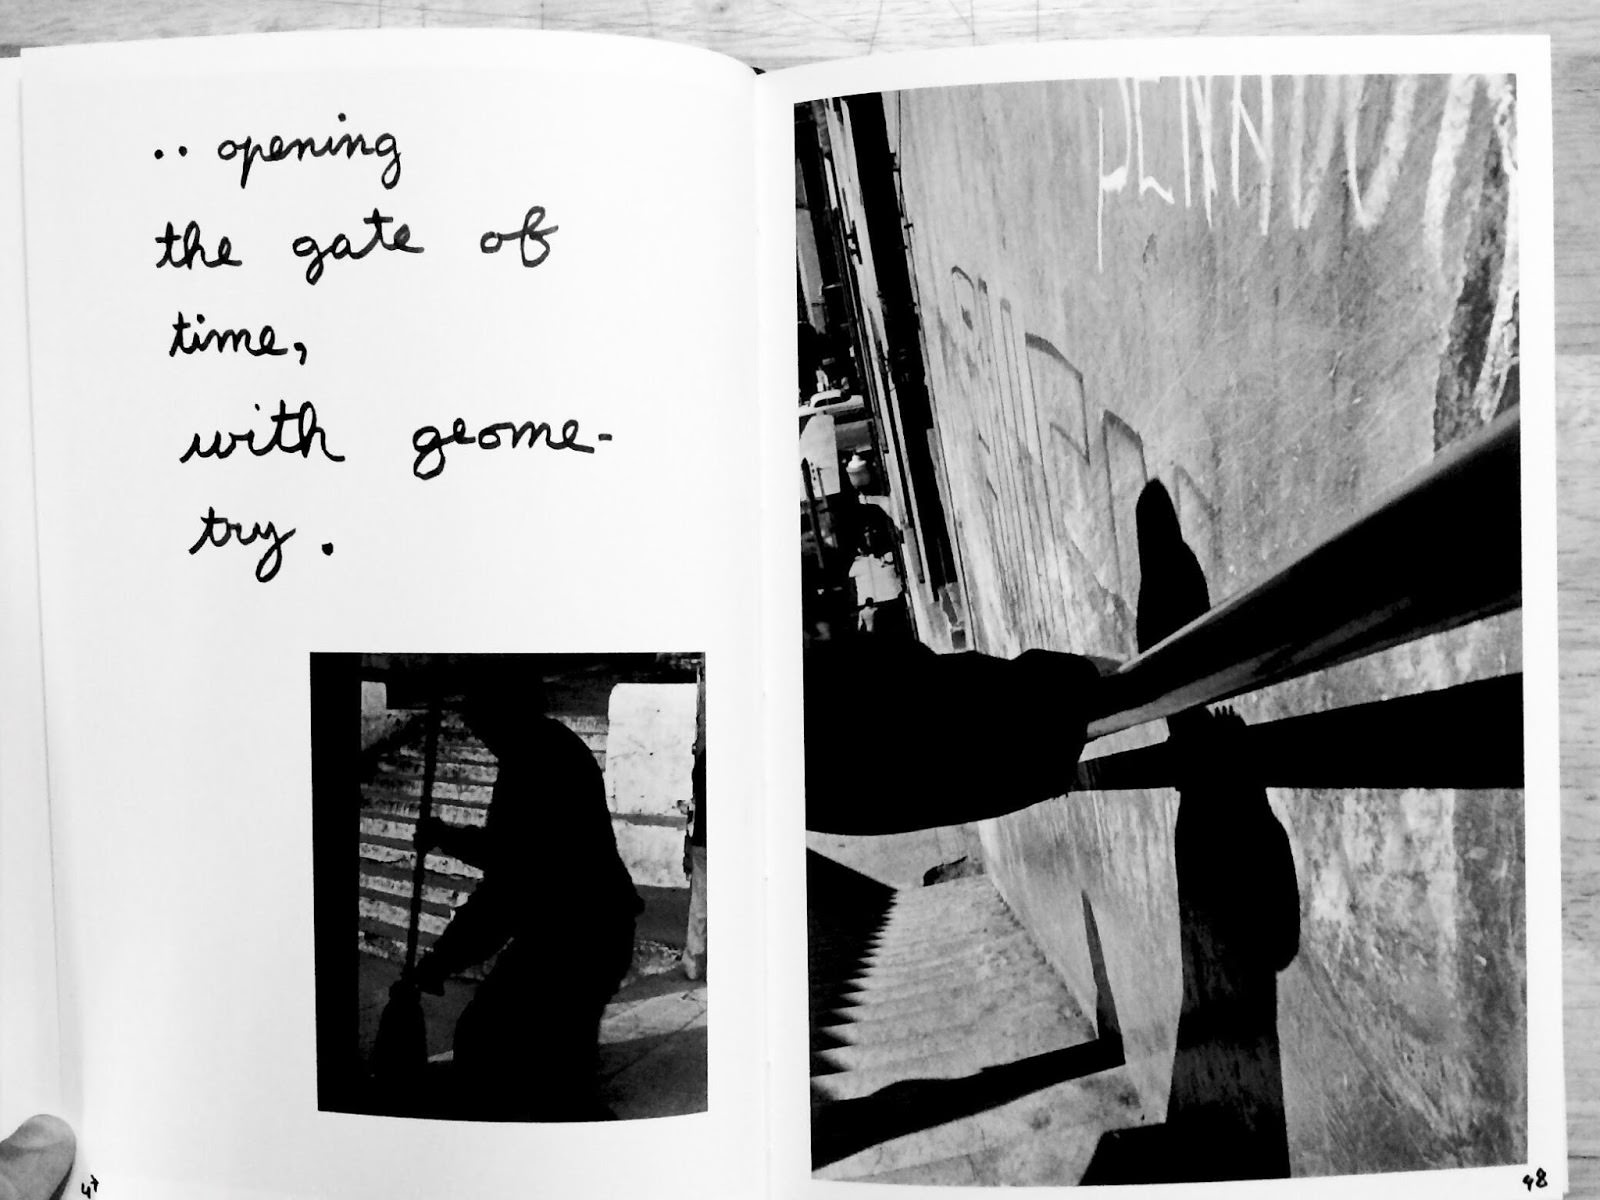 .. opening
the gate of
time,
with geome-
try.
47
48